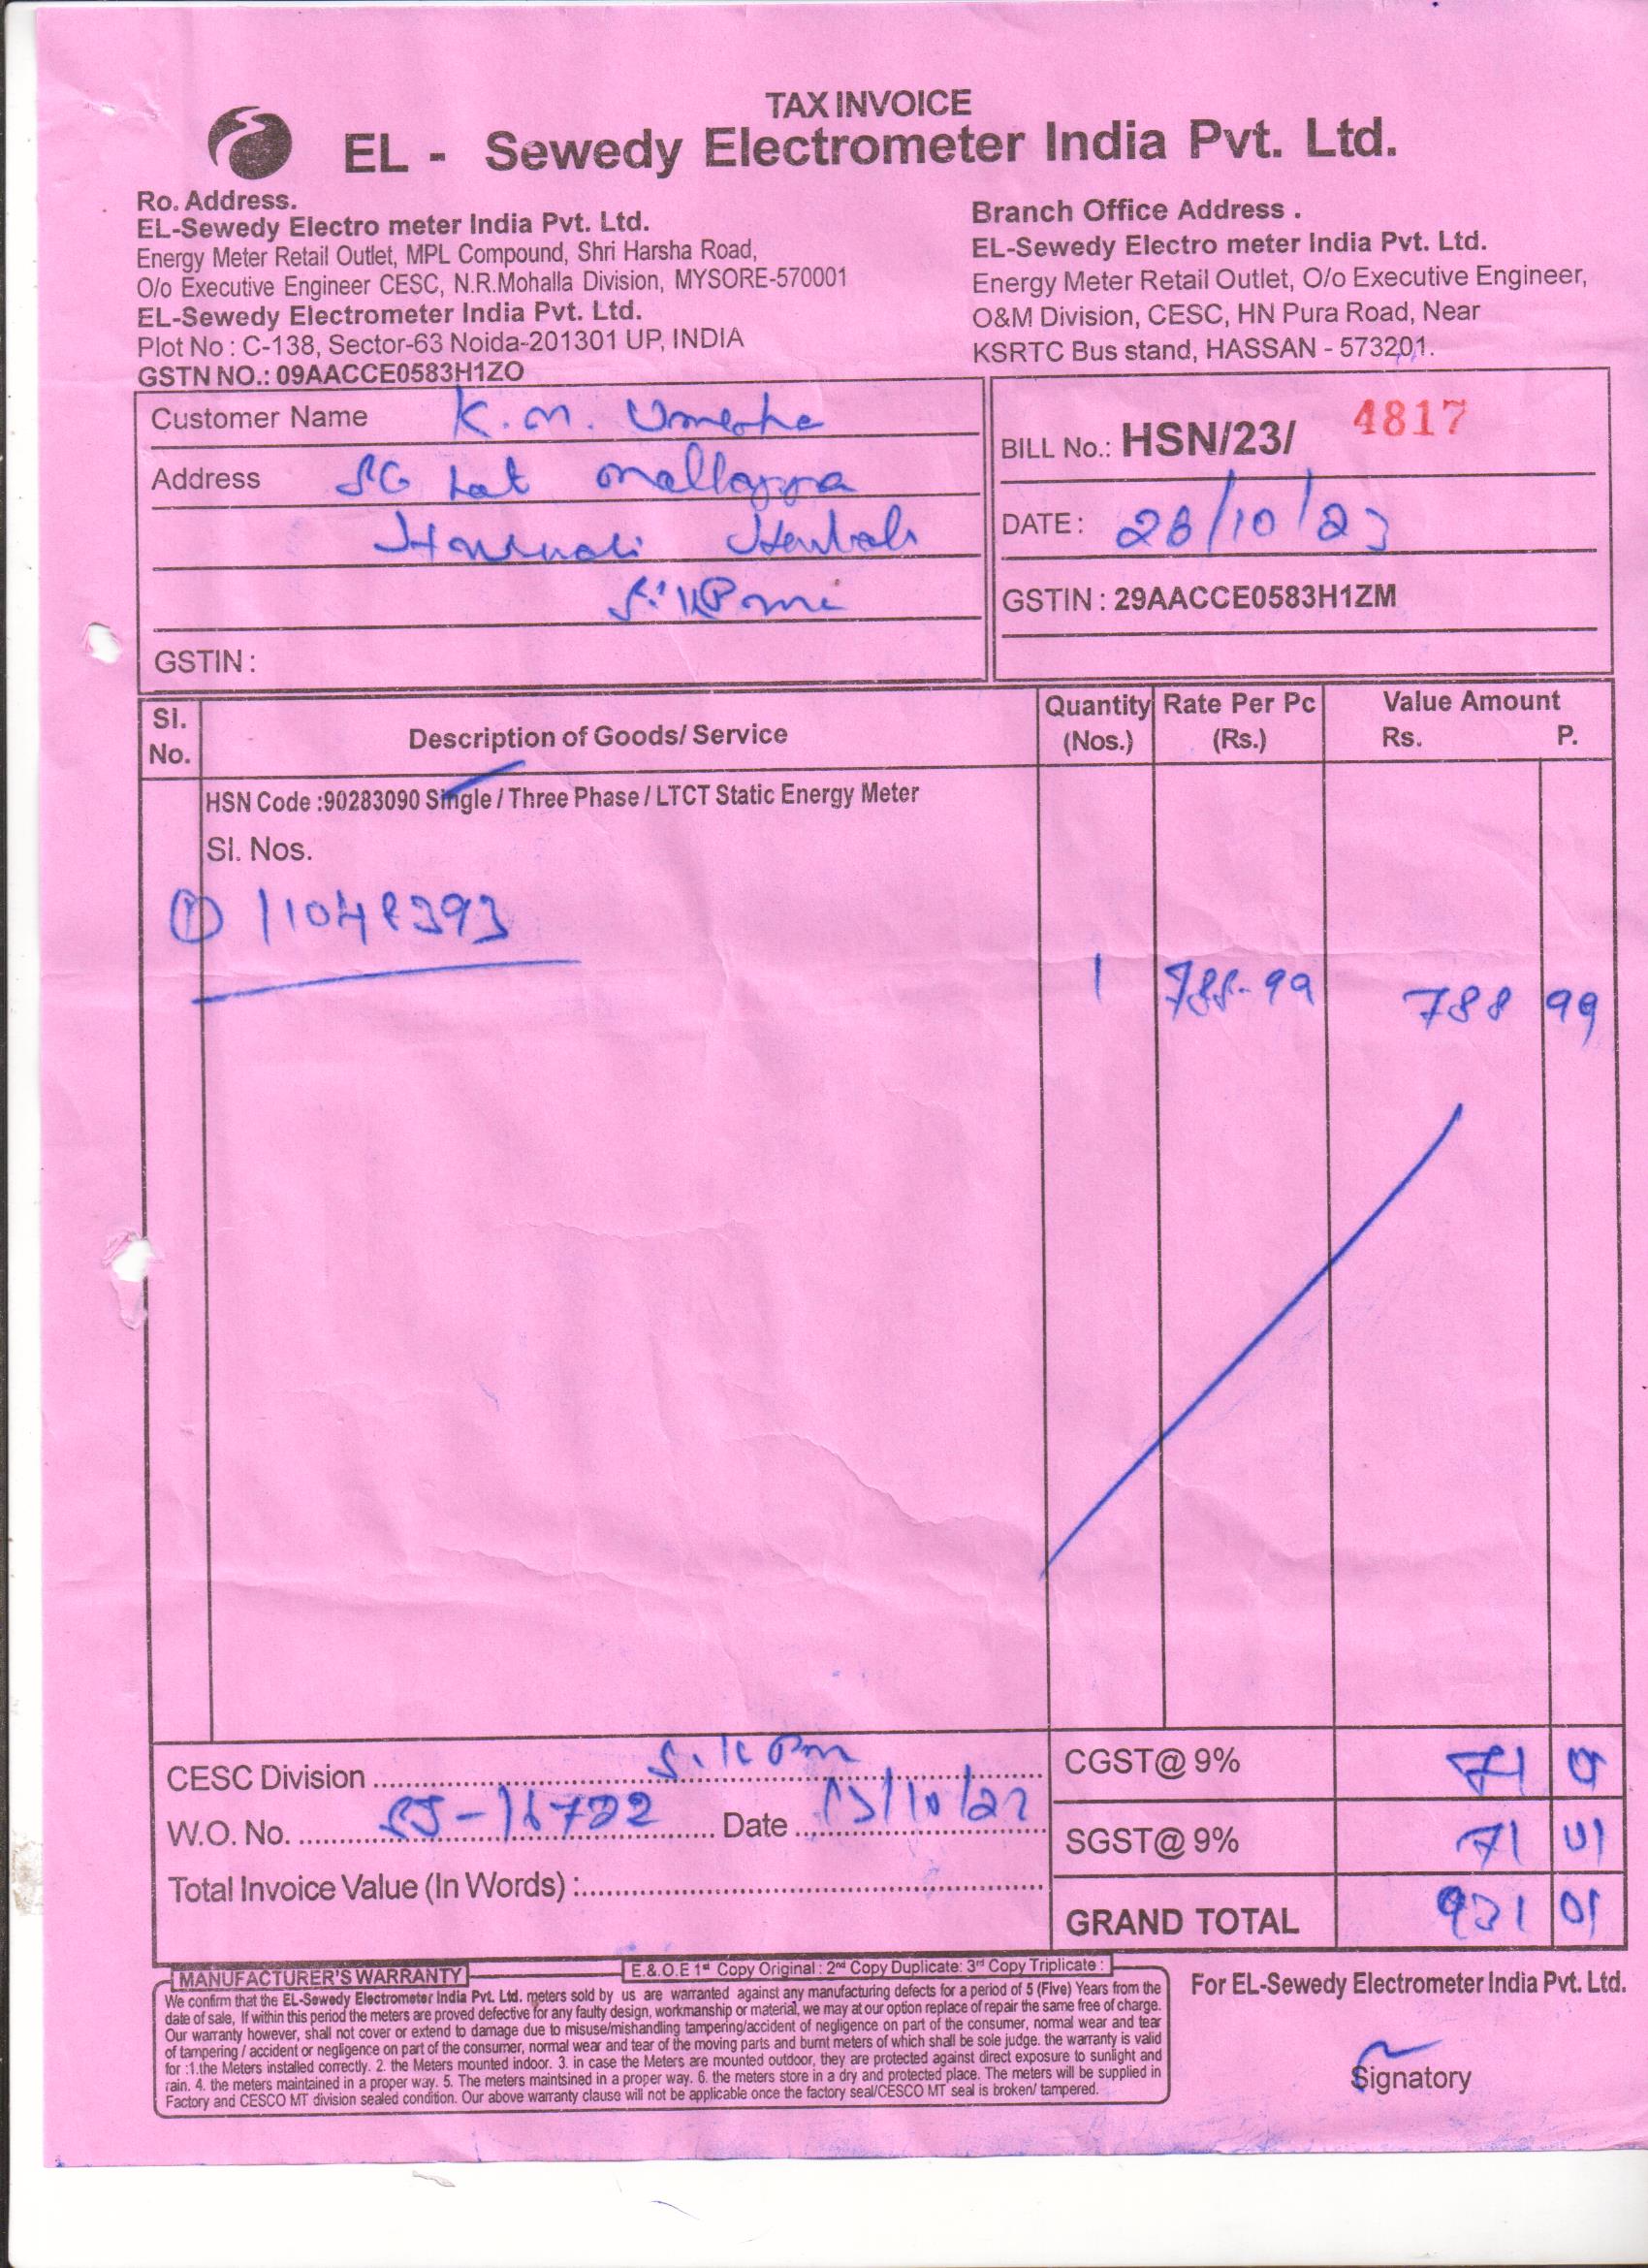 TAX INVOICE
EL - Sewedy Electrometer India Pvt. Ltd.
Ro. Address.
EL-Sewedy Electro meter India Pvt. Ltd.
Energy Meter Retail Outlet, MPL Compound, Shri Harsha Road,
O/o Executive Engineer CESC, N.R.Mohalla Division, MYSORE-570001
EL-Sewedy Electrometer India Pvt. Ltd.
Plot No : C-138, Sector-63 Noida-201301 UP, INDIA
GSTN NO.: 09AACCE0583H1ZO
Branch Office Address .
EL-Sewedy Electro meter India Pvt. Ltd.
Energy Meter Retail Outlet, O/o Executive Engineer,
O&M Division, CESC, HN Pura Road, Near
KSRTC Bus stand, HASSAN - 573201.
Customer Name K. M. Umesha
Address Mallappa
GSTIN :
BILL No.: HSN/23/ 4817
DATE : 26/10/23
GSTIN : 29AACCE0583H1ZM
Sl. No. Description of Goods/ Service Quantity (Nos.) Rate Per Pc (Rs.) Value Amount Rs. P.
HSN Code :90283090 Single / Three Phase / LTCT Static Energy Meter
Sl. Nos.
① 11048393
1 788-99 788 99
CESC Division
W.O. No. Date
Total Invoice Value (In Words) :
CGST@ 9% 71 01
SGST@ 9% 71 01
GRAND TOTAL 931 01
MANUFACTURER'S WARRANTY
E.&.O.E 1st Copy Original : 2nd Copy Duplicate: 3rd Copy Triplicate :
We confirm that the EL-Sewedy Electrometer India Pvt. Ltd. meters sold by us are warranted against any manufacturing defects for a period of 5 (Five) Years from the
date of sale, If within this period the meters are proved defective for any faulty design, workmanship or material, we may at our option replace of repair the same free of charge.
Our warranty however, shall not cover or extend to damage due to misuse/mishandling tampering/accident of negligence on part of the consumer, normal wear and tear
of tampering / accident or negligence on part of the consumer, normal wear and tear of the moving parts and burnt meters of which shall be sole judge. the warranty is valid
for :1.the Meters installed correctly. 2. the Meters mounted indoor. 3. in case the Meters are mounted outdoor, they are protected against direct exposure to sunlight and
rain. 4. the meters maintained in a proper way. 5. The meters maintsined in a proper way. 6. the meters store in a dry and protected place. The meters will be supplied in
Factory and CESCO MT division sealed condition. Our above warranty clause will not be applicable once the factory seal/CESCO MT seal is broken/ tampered.
For EL-Sewedy Electrometer India Pvt. Ltd.
Signatory